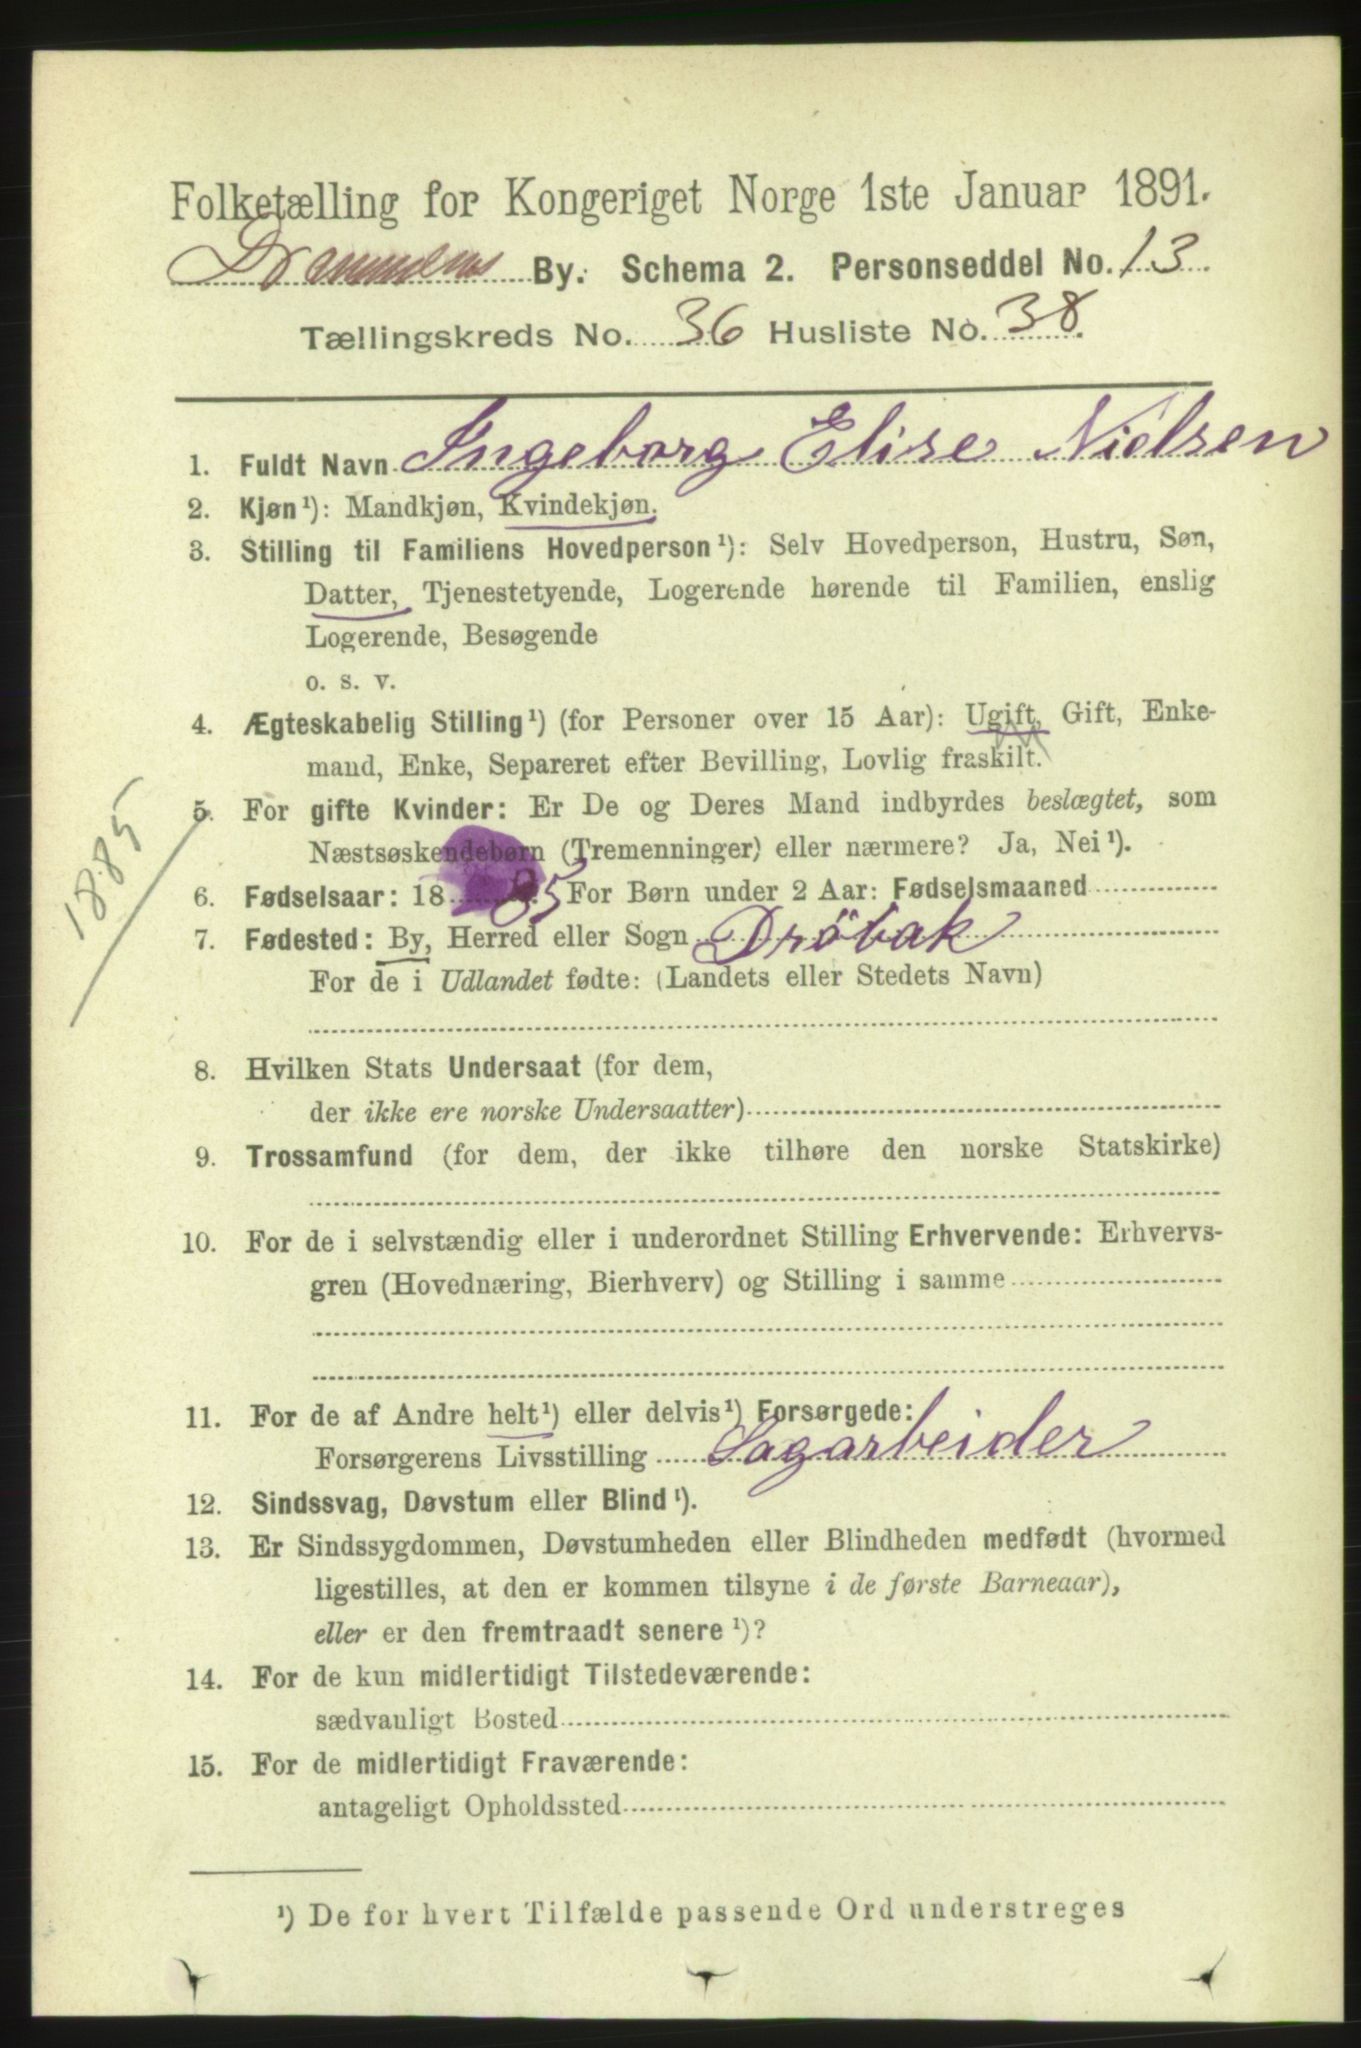 Folketælling for Kongeriget Norge 1ste Januar 1891.
Drammens By. Schema 2. Personseddel No. 13
Tællingskreds No. 36 Husliste No. 38.
1. Fuldt Navn Ingeborg Elise Nielsen
2. Kjøn¹): Mandkjøn, Kvindekjøn.
3. Stilling til Familiens Hovedperson¹): Selv Hovedperson, Hustru, Søn,
Datter, Tjenestetyende, Logerende hørende til Familien, enslig
Logerende, Besøgende
o. s. v.
4. Ægteskabelig Stilling¹) (for Personer over 15 Aar): Ugift, Gift, Enke-
mand, Enke, Separeret efter Bevilling, Lovlig fraskilt.
5. For gifte Kvinder: Er De og Deres Mand indbyrdes beslægtet, som
Næstsøskendebørn (Tremenninger) eller nærmere? Ja, Nei¹).
1885
6. Fødselsaar: 1885 For Børn under 2 Aar: Fødselsmaaned
7. Fødested: By, Herred eller Sogn Drøbak
For de i Udlandet fødte: (Landets eller Stedets Navn)
8. Hvilken Stats Undersaat (for dem,
der ikke ere norske Undersaatter)
9. Trossamfund (for dem, der ikke tilhøre den norske Statskirke)
10. For de i selvstændig eller i underordnet Stilling Erhvervende: Erhvervs-
gren (Hovednæring, Bierhverv) og Stilling i samme
11. For de af Andre helt¹) eller delvis¹) Forsørgede:
Forsørgerens Livsstilling Sagarbeider
12. Sindssvag, Døvstum eller Blind¹).
13. Er Sindssygdommen, Døvstumheden eller Blindheden medfødt (hvormed
ligestilles, at den er kommen tilsyne i de første Barneaar),
eller er den fremtraadt senere¹)?
14. For de kun midlertidigt Tilstedeværende:
sædvanligt Bosted
15. For de midlertidigt Fraværende:
antageligt Opholdssted
¹) De for hvert Tilfælde passende Ord understreges